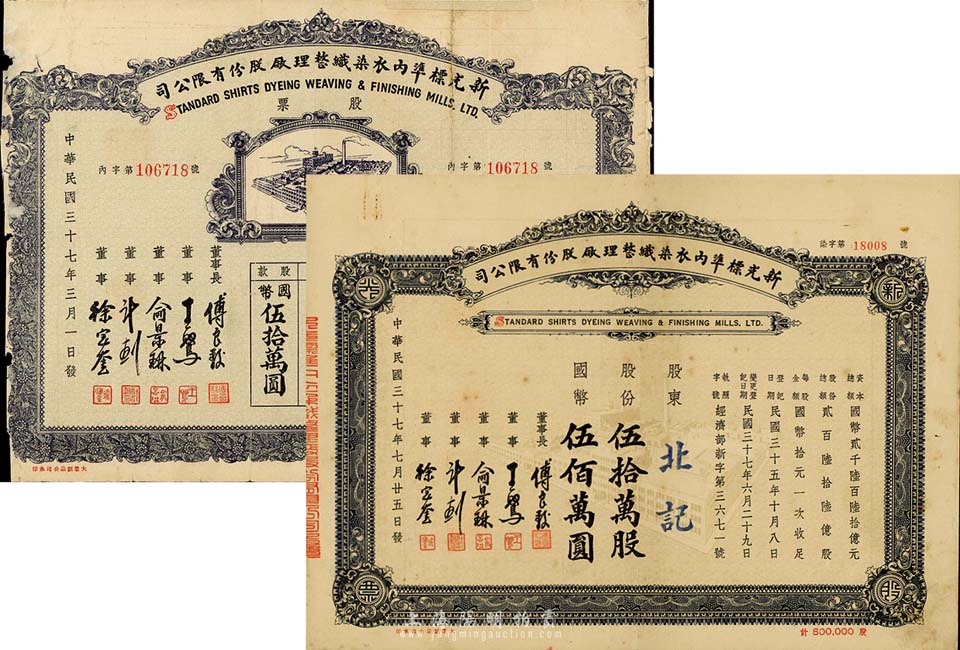 新光標準內衣染織整理廠股份有限公司
STANDARD SHIRTS DYEING WEAVING & FINISHING MILLS, LTD.
股票
內字第106718號
內字第106718號
股款
國幣伍拾萬圓
董事長 傅良駿
董事
董事 俞景琳
董事 計剑
董事 徐宏奎
中華民國三十七年三月一日發
大業印品公司承印
染字第 18008 號
新光標準內衣染織整理廠股份有限公司
STANDARD SHIRTS DYEING WEAVING & FINISHING MILLS. LTD.
新
光
股
票
資本總額國幣貳千陸百陸拾億元
股份總額貳百陸拾陸億股
每股金額國幣拾元一次收足
登記日期民國三十五年十月八日
變更登記日期民國三十七年六月二十九日
執照字號經濟部新字第三六七一號
股東 北記
股份 伍拾萬股
國幣 伍佰萬圓
董事長 傅良駿
董事
董事 俞景琳
董事 計剑
董事 徐宏奎
中華民國三十七年七月廿五日發
計 500,000 股
上海陽明拍賣
www.yangmingauction.com